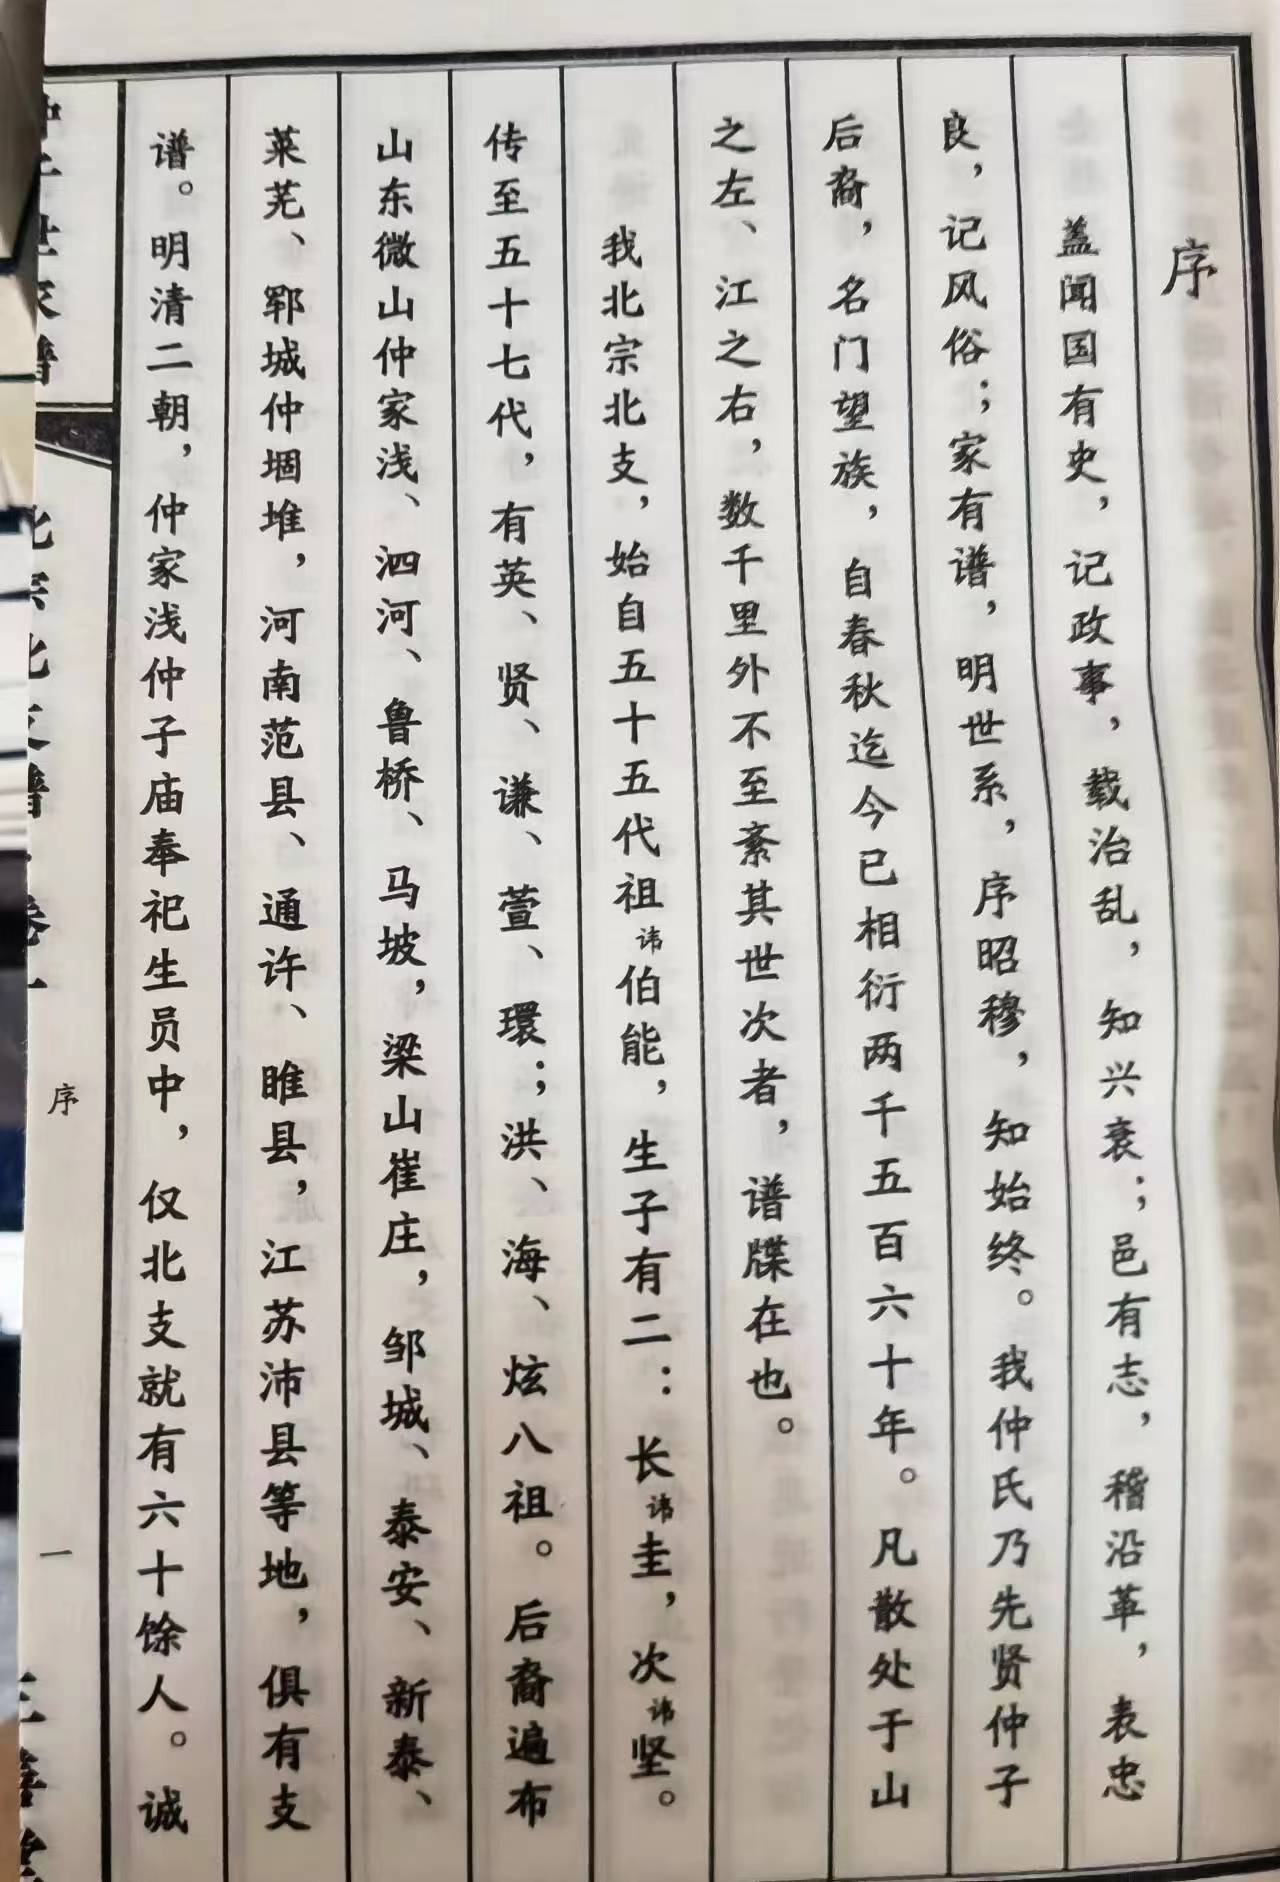 序
盖闻国有史，记政事，载治乱，知兴衰；邑有志，稽沿革，表忠
良，记风俗；家有谱，明世系，序昭穆，知始终。我仲氏乃先贤仲子
后裔，名门望族，自春秋迄今已相衍两千五百六十年。凡散处于山
之左、江之右，数千里外不至紊其世次者，谱牒在也。
我北宗北支，始自五十五代祖讳伯能，生子有二：长讳圭，次讳坚。
传至五十七代，有英、贤、谦、萱、環；洪、海、炫八祖。后裔遍布
山东微山仲家浅、泗河、鲁桥、马坡，梁山崔庄，邹城、泰安、新泰、
莱芜、郓城仲堌堆，河南范县、通许、睢县，江苏沛县等地，俱有支
谱。明清二朝，仲家浅仲子庙奉祀生员中，仅北支就有六十馀人。诚
北宗北支谱·卷一
序
一